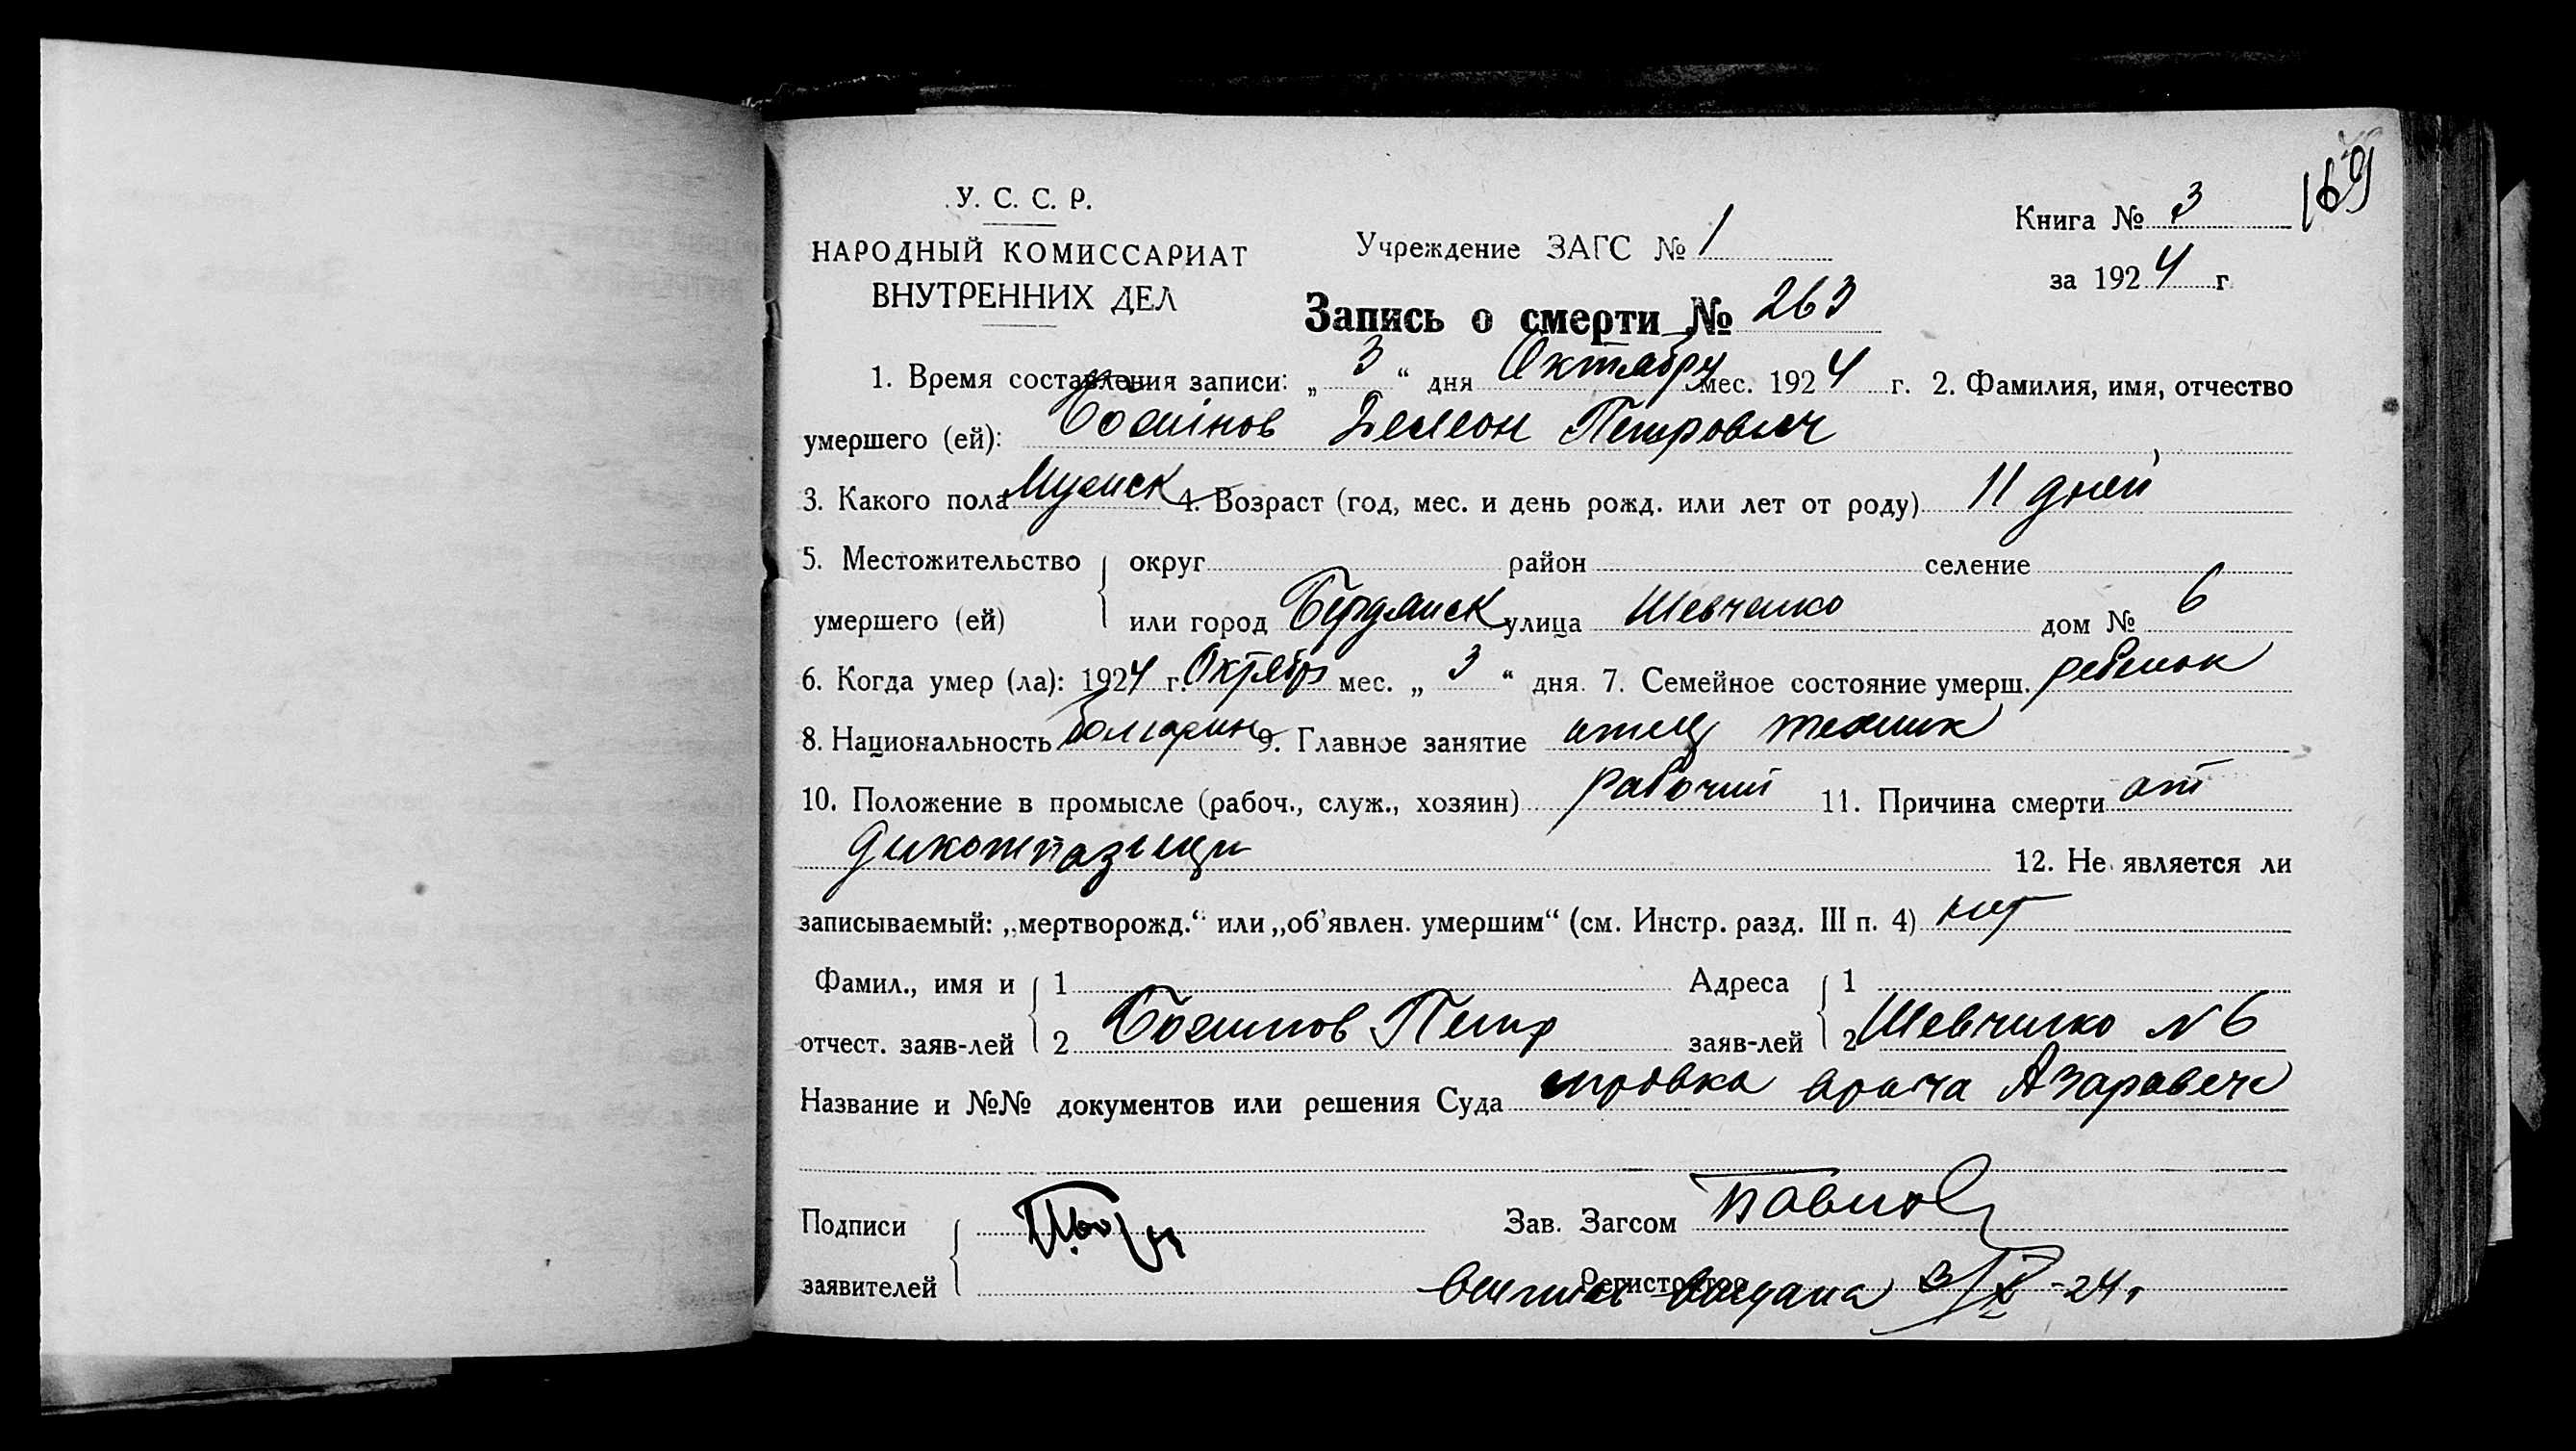 169
У. С. С. Р.
НАРОДНЫЙ КОМИССАРИАТ
ВНУТРЕННИХ ДЕЛ
Учреждение ЗАГС № 1
Книга № 3
за 1924 г.
Запись о смерти № 263
1. Время составления записи: „ 3 “ дня Октября мес. 1924 г. 2. Фамилия, имя, отчество
умершего (ей): Петрович
3. Какого пола Мужск 4. Возраст (год, мес. и день рожд. или лет от роду) 11 дней
5. Местожительство округ район селение
умершего (ей) или город Бердянск улица Шевченко дом № 6
6. Когда умер (ла): 1924 г. Октябр мес. „ 3 “ дня. 7. Семейное состояние умерш. ребенок
8. Национальность болгарин 9. Главное занятие отец техник
10. Положение в промысле (рабоч., служ., хозяин) рабочий 11. Причина смерти от
12. Не является ли
записываемый: „мертворожд.“ или „об’явлен. умершим“ (см. Инстр. разд. III п. 4) нет
Фамил., имя и 1 Адреса 1
отчест. заяв-лей 2 Божинов Петр заяв-лей 2 Шевченко № 6
Название и №№ документов или решения Суда врача
Подписи Зав. Загсом
заявителей Регистратор выдана 3/X-24 г